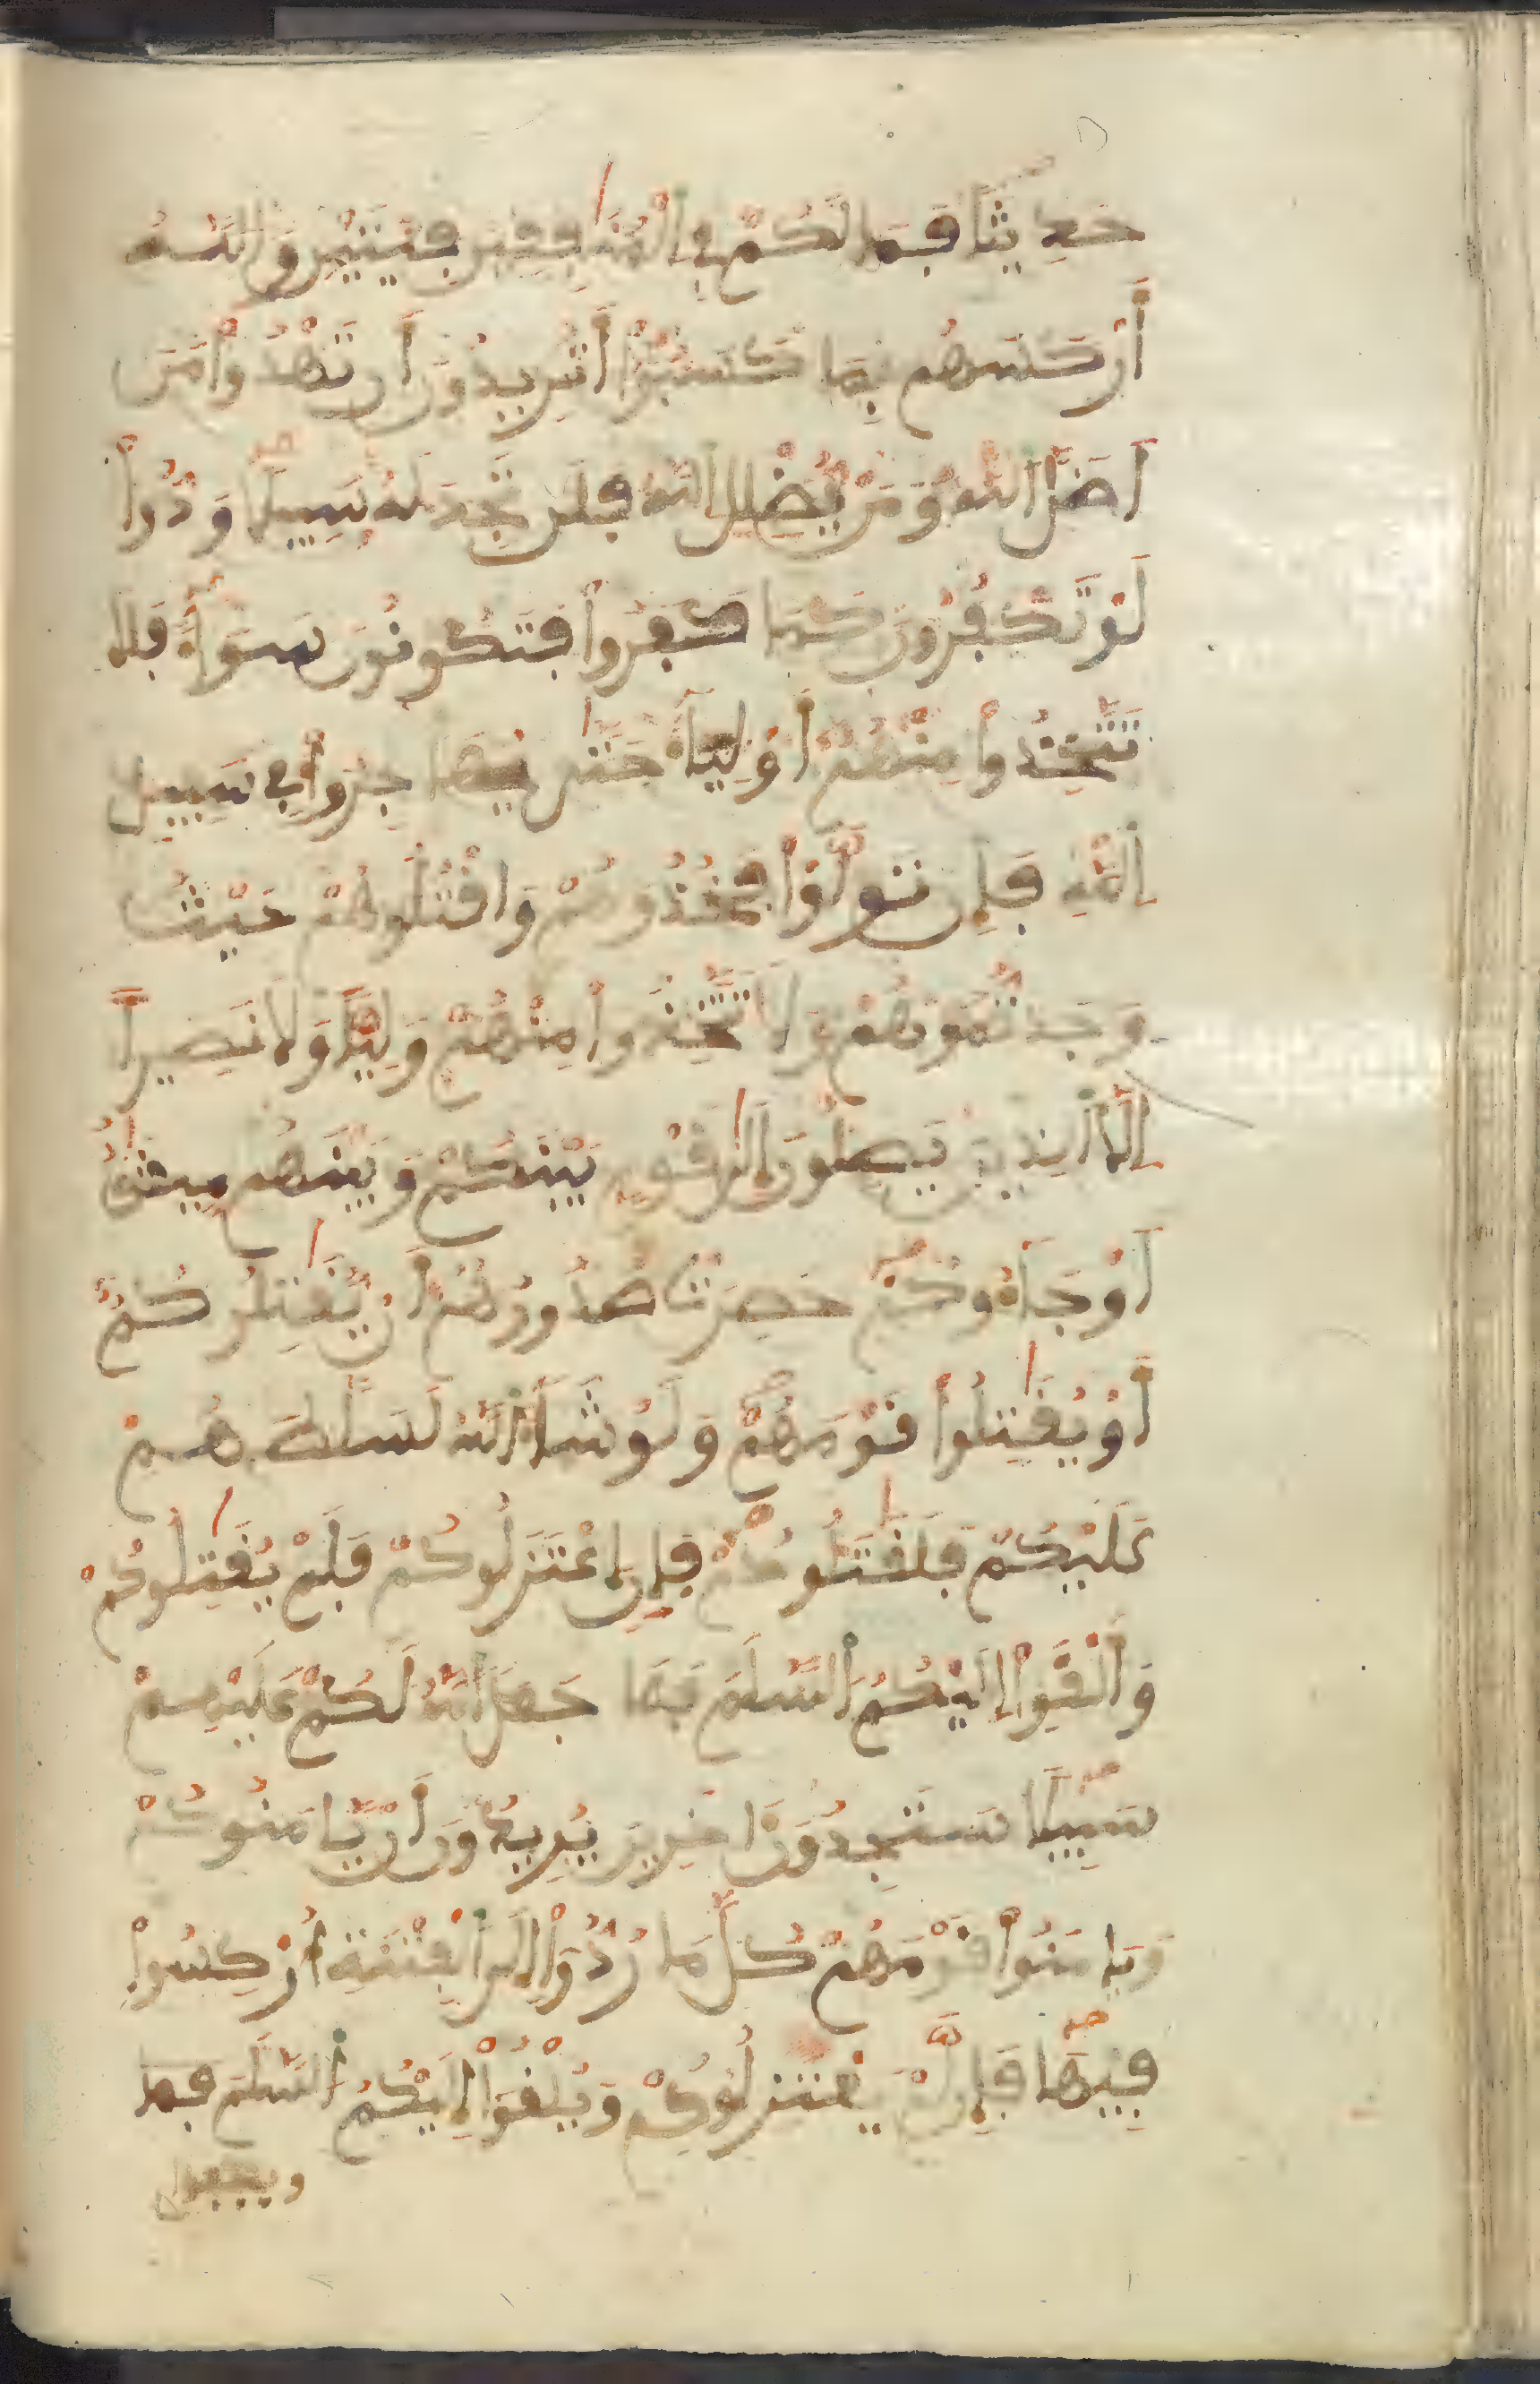 حَدِيثاً فَمَا لَكُمْ فِي اِ۬لْمُنَٰفِقِينَ فِئَتَيْنِ وَاللَّهُ
أَرْكَسَهُم بِمَا كَسَبُوٓاْ أَتُرِيدُونَ أَن تَهْدُواْ مَنَ
اَضَلَّ اَ۬للَّهُ وَمَنْ يُّضْلِلِ اِ۬للَّهُ فَلَن تَجِدَ لَهُ سَبِيلاً وَدُّواْ
لَوْ تَكْفُرُونَ كَمَا كَفَرُواْ فَتَكُونُونَ سَوَآءً فَلَا
تَتَّخِذُواْ مِنْهُمُ أَوْلِيَآءَ حَتَّىٰ يُهَاجِرُواْ فِي سَبِيلِ
اِ۬للَّهِ فَإِن تَوَلَّوْاْ فَخُذُوهُمْ وَاقْتُلُوهُمْ حَيْثُ
وَجَدتُّمُوهُمْ وَلَا تَتَّخِذُواْ مِنْهُمْ وَلِيّاً وَلَا نَصِيراً
اِلَّا اَ۬لذِينَ يَصِلُونَ إِلَىٰ قَوْمِ بَيْنَكُمْ وَبَيْنَهُم مِّيثَٰقٌ
اَوْ جَآءُوكُمْ حَصِرَتْ صُدُورُهُمُ أَنْ يُّقَٰتِلُوكُمُ
أَوْ يُقَٰتِلُواْ قَوْمَهُمْ وَلَوْ شَآءَ اَ۬للَّهُ لَسَلَّطَهُمْ
عَلَيْكُمْ فَلَقَٰتَلُوكُمْ فَإِنِ اِ۪عْتَزَلُوكُمْ فَلَمْ يُقَٰتِلُوكُمْ
وَأَلْقَوِاْ اِلَيْكُمُ اُ۬لسَّلَمَ فَمَا جَعَلَ اَ۬للَّهُ لَكُمْ عَلَيْهِمْ
سَبِيلاً سَتَجِدُونَ ءَاخَرِينَ يُرِيدُونَ أَنْ يَّامَنُوكُمْ
وَيَامَنُواْ قَوْمَهُمْ كُلَّ مَا رُدُّوٓاْ إِلَى اَ۬لْفِتْنَةِ أُرْكِسُواْ
فِيهَا فَإِن لَّمْ يَعْتَزِلُوكُمْ وَيُلْقُوٓاْ إِلَيْكُمُ اُ۬لسَّلَمَ فَمَا